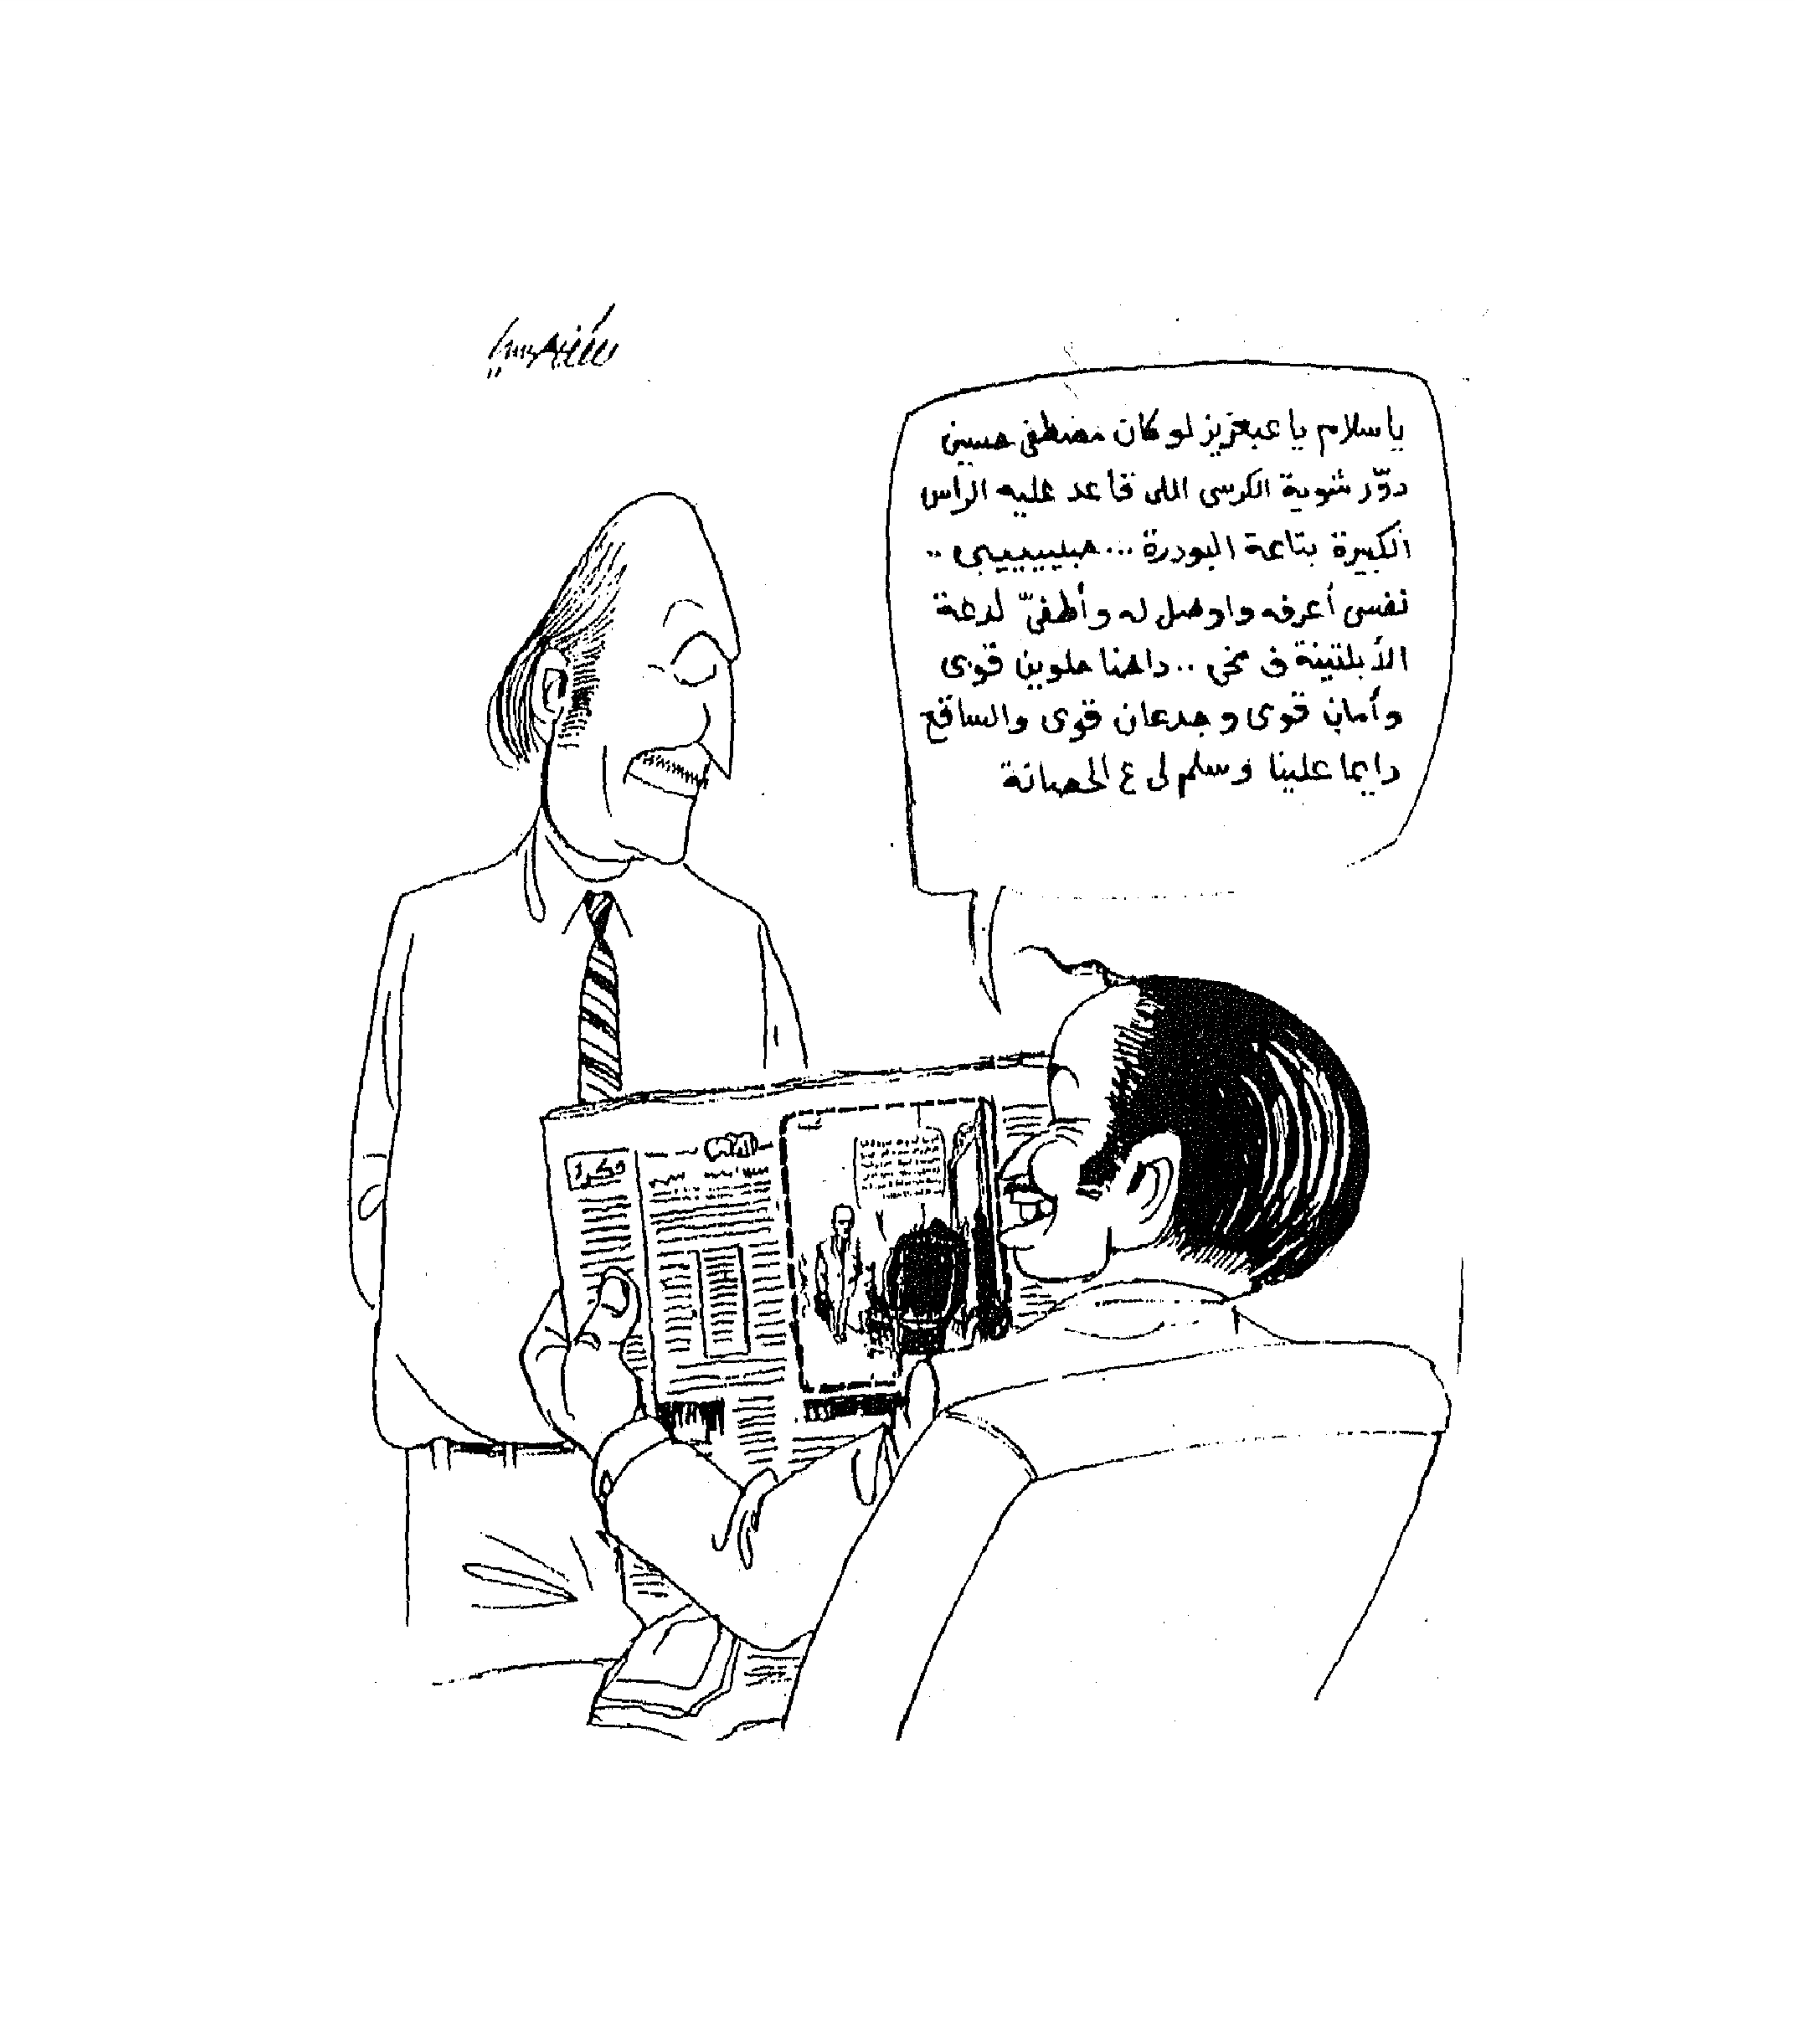 ياسلام يا عبعزيز لو كان مصطفى حسين
دوّر شوية الكرسى اللى قاعد عليه الراس
الكبيرة بتاعة البودرة ... حبيبييبى ..
نفسى أعرفه واوصل له وأطفىّ لدعة
الأبلتينة ف مخى .. داحنا حلوين قوى
وأمان قوى وجدعان قوى والساقع
دايما علينا وسلم لى ع الحصانة